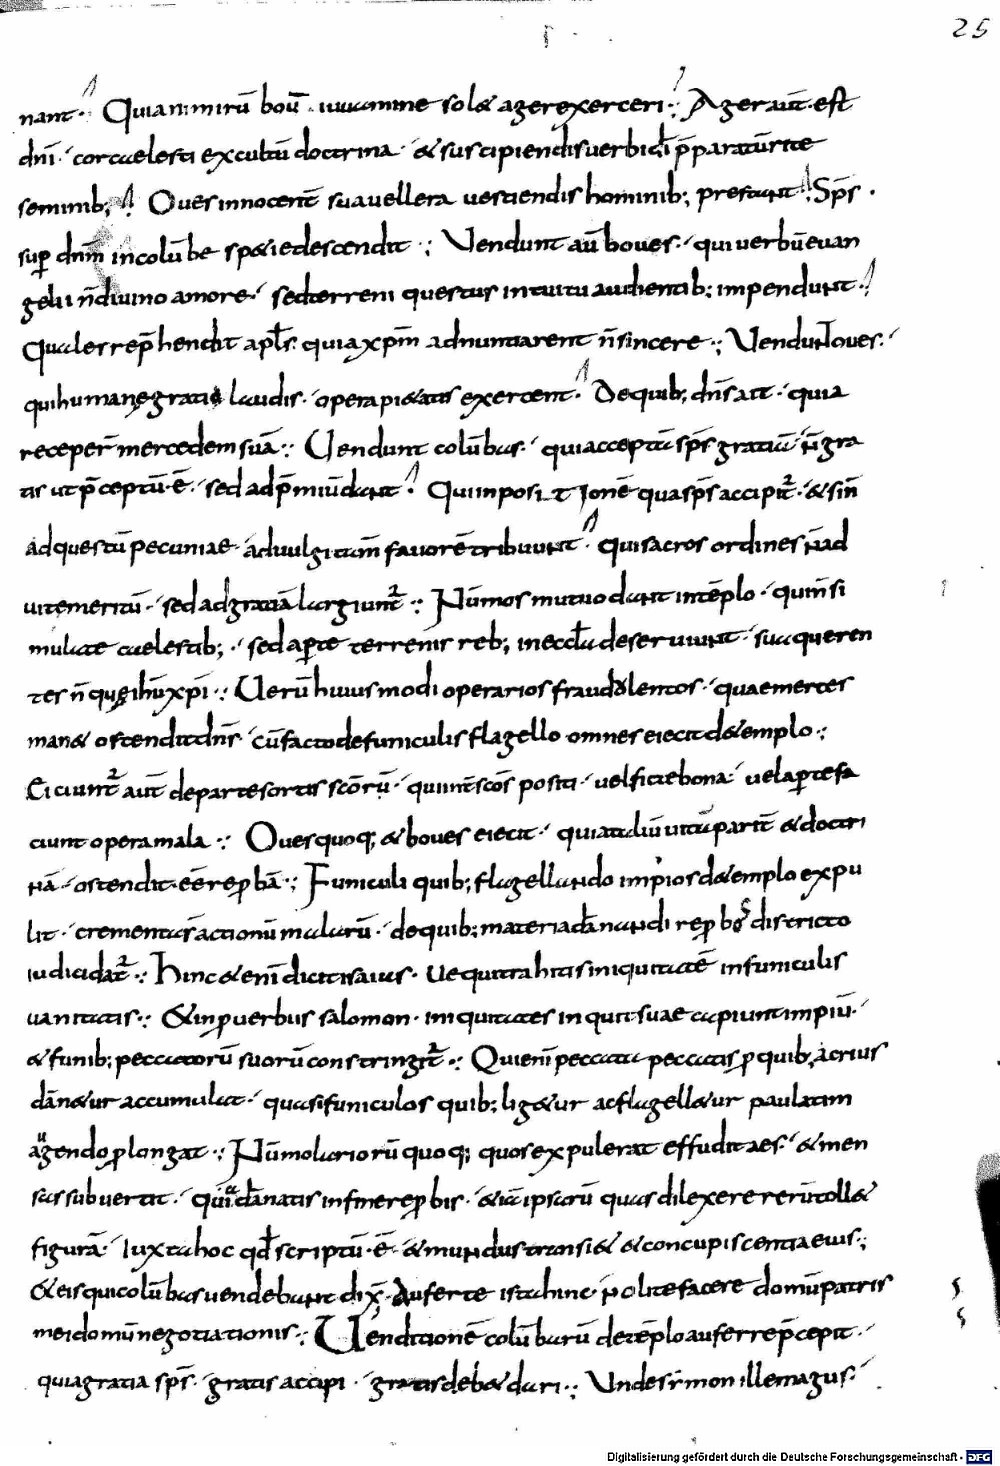 25
nant·: Quia nimirū boū · iuuamine solę ager exerceri·: Ager aut̄ est
dn̄i· cor caelesti excultū doctrina· & suscipiendis uerbi di p̄paratū rite
seminib; Oues innocent̄ sua uellera uestiendis hominib; prestant· Sp̄s·
sup dn̄m in columbe spetie descendit·: Vendunt aū boues· qui uerbū euan
gelii n̄ diuino amore· sed terreni questus intuitu audientib; impendunt·
Quales rep̄hendit apl̄s· quia xp̄m adnuntiarent n̄ sincere·: Vendunt oues·
qui humanę gratia laudis· opera pi&atis exercent· De quib; dn̄s ait· quia
receper̄ mercedem suā·: Uendunt colūbas· qui acceptū sp̄s gratiā n̄ gra
tis ut p̄ceptū·ē· sed ad p̄miū dant· Qui inposi tionē qua sp̄s accipit̄· & sin̄
ad questū pecuniae· ad uulgi tam̄ fauorē tribuunt· qui sacros ordines n̄ ad
uitę meritū· sed ad gratiā largiunt̄·: Nūmos mutuo dant in tēplo· qui n̄ si
mulate caelestib;· sed aperte terrenis reb; in ecclā deseruiunt· sua queren
tes n̄ quę ihū xp̄i·: Uerū huius modi operarios fraudolentos· quae merces
man& ostendit dn̄s· cū facto de funiculis flagello omnes eiecit de templo·:
Eiciunt̄ aut̄ de parte sortis scōrū· qui int̄ scōs positi· uel ficte bona· uel aperte fa
ciunt opera mala·: Oues quoq; & boues eiecit· quia taliū uitā parit̄ & doctri
nā· ostendit·eē reprobā·: Funiculi quib; flagellando impios de templo expu
lit· crementa s̄ actionū malarū· de quib; materia dānandi reprobos districto
iudici dat̄·: Hinc & enī dicit isaias· Ve qui trahitis iniquitatē in funiculis
uanitatis·: & in prouerbiis salomon· iniquitates inquit suae capiunt impiū·
& funib; peccatorū suorū constringit̄·: Qui enī peccata peccatis p quib; acrius
dān&ur accumulat· quasi funiculos quib; lig&ur ac flagell&ur paulatim
augendo plongat·: Nūmolariorū quoq; quos expulerat effudit aes· & men
sas subuertit· quia dānatis in fine reprobis· & iā ipsarū quas dilexere rerū toll&
figurā· Iuxta hoc qd scriptū·ē· & mundus transi& & concupiscentia eius·;
& eis qui colūbas uendebant dix̄· Auferte ista hinc· nolite facere domū patris
mei domū negotiationis·: Uenditionē colūbarū de tēplo auferre p̄cepit·
quia gratia sp̄s· gratis accipi· gratis deb& dari·: Unde simon ille magus·
Digitalisierung gefördert durch die Deutsche Forschungsgemeinschaft · DFG